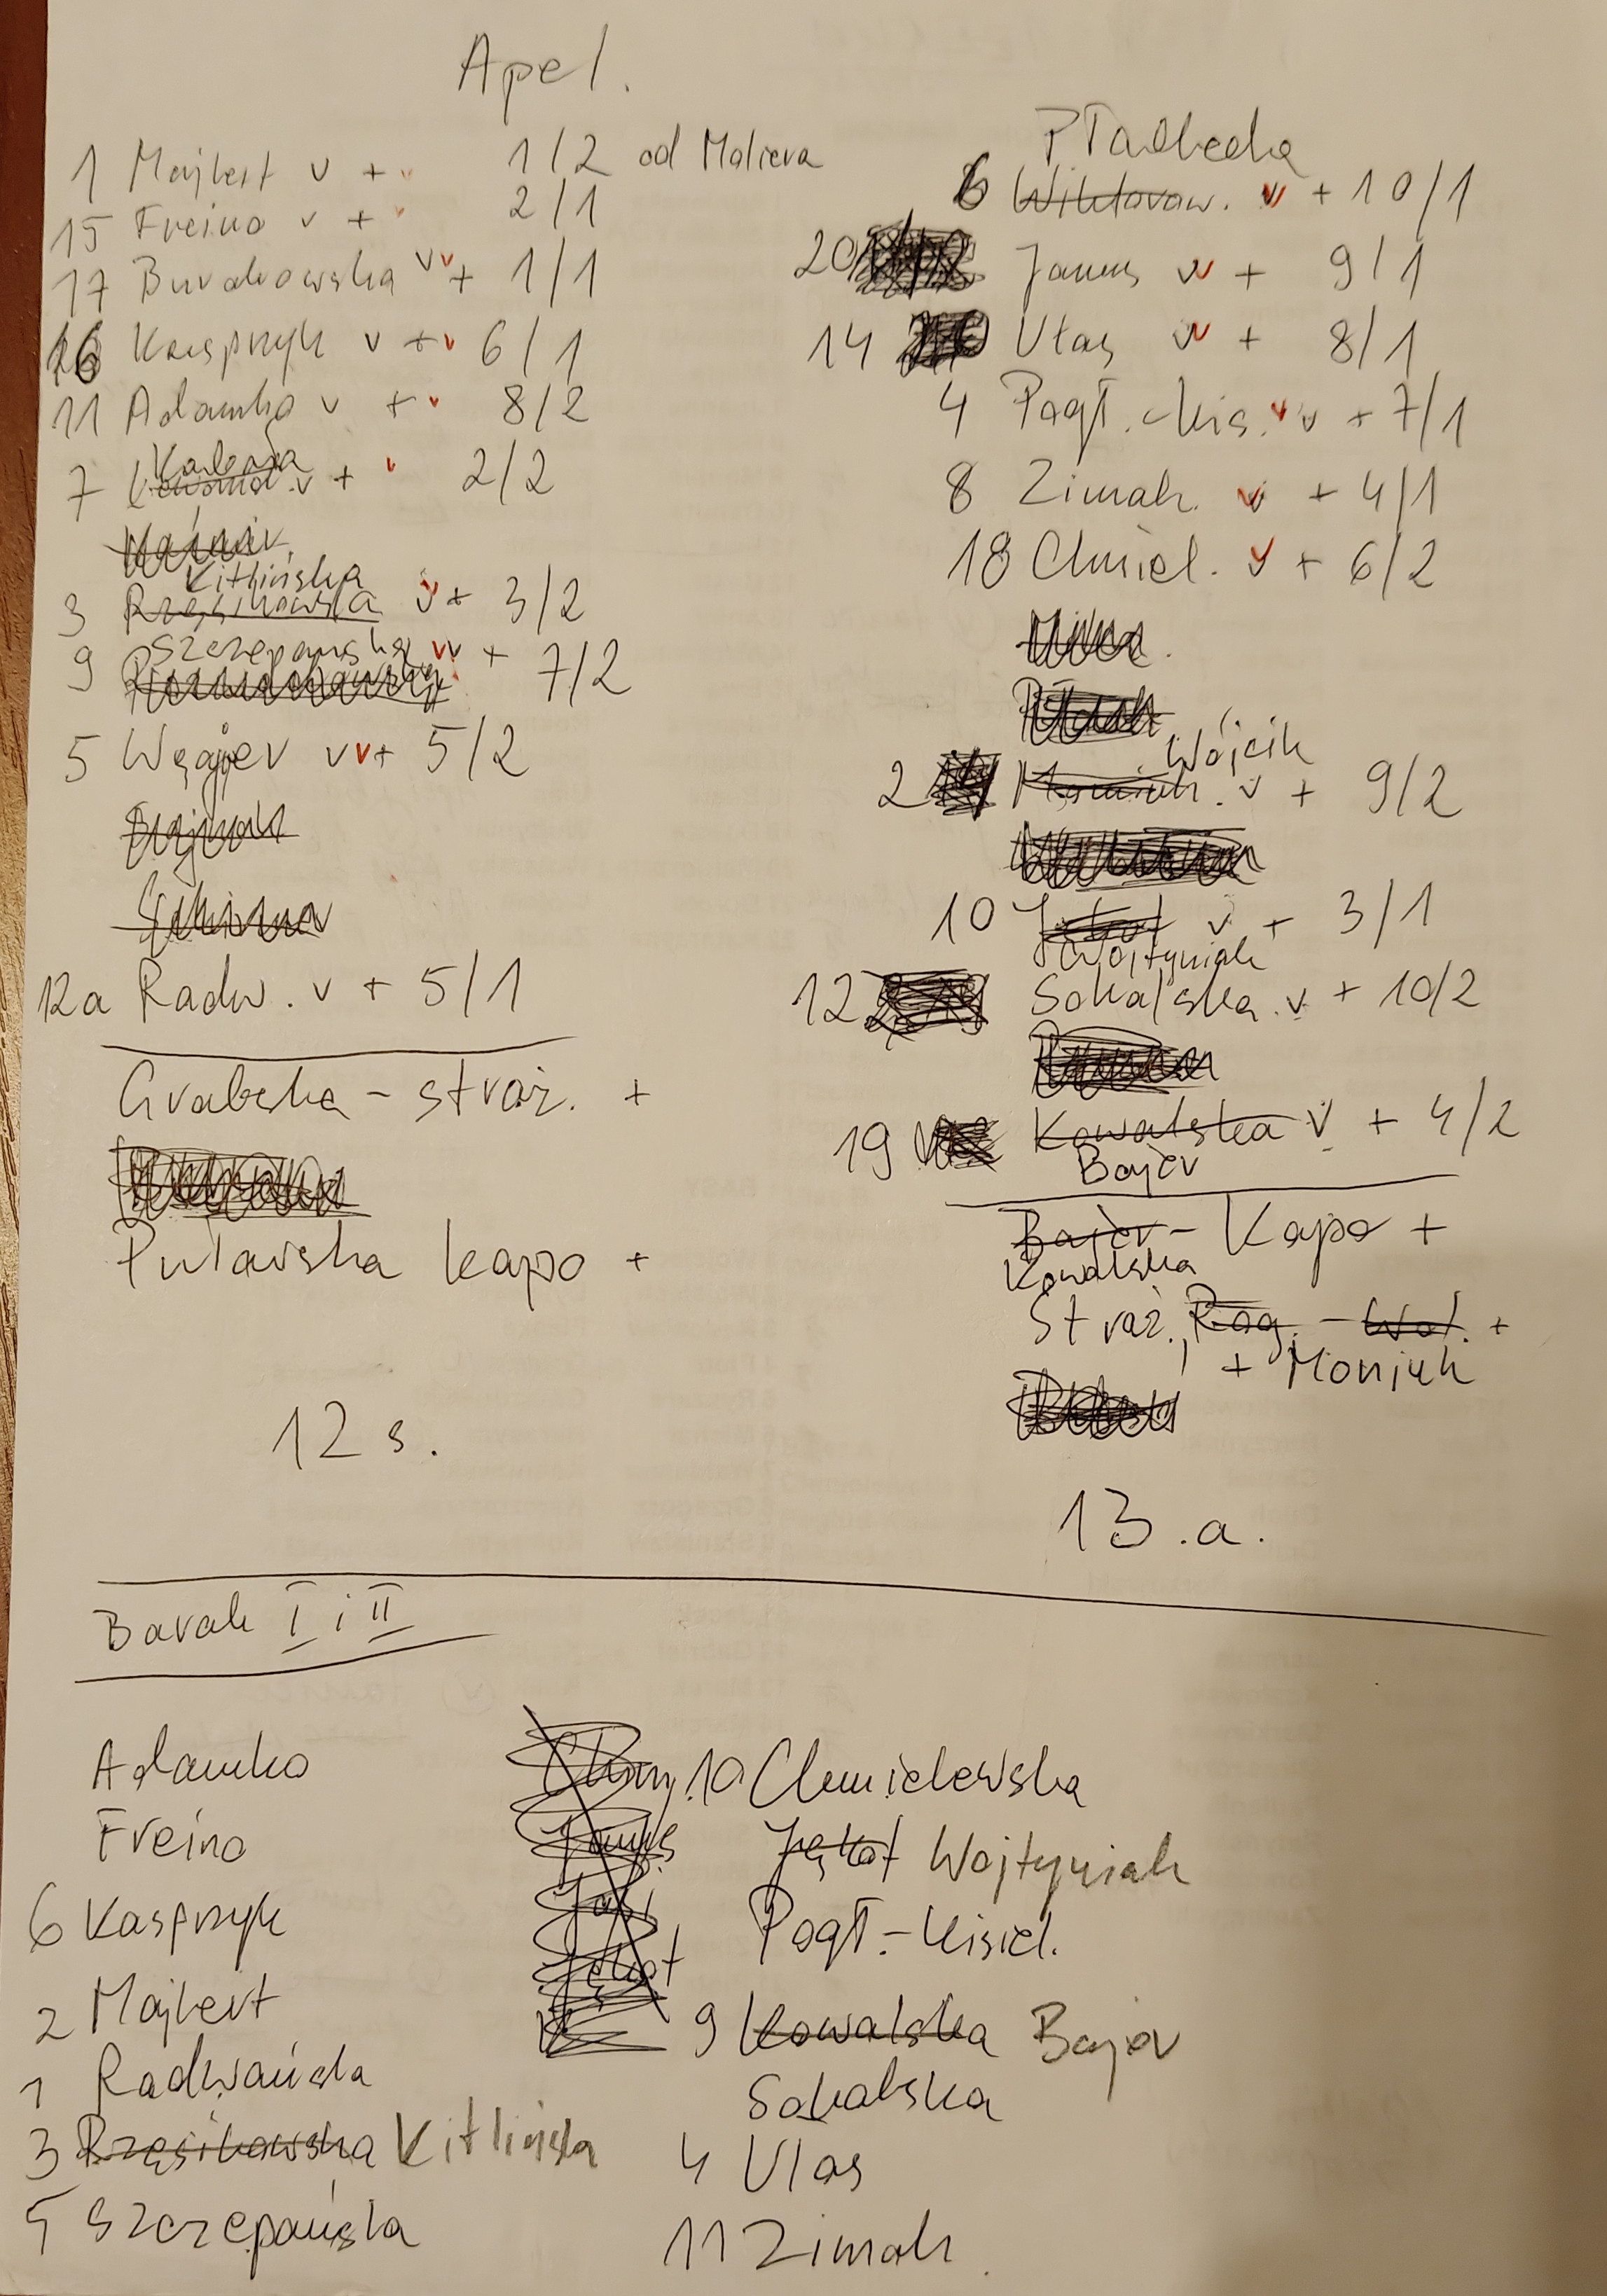 Apel.
1 Majbert v + v 1/2 od Moliera
15 Freino v + v 2/1
17 Burakowska v v + 1/1
16 Kasprzyk v + v 6/1
11 Adamko v + v 8/2
7 v + v 2/2
Kitlińska
3 Rzęsikowska v + 3/2
Szczepańska v v +
9 7/2
5 Węgier v v + 5/2
12a Radw. v + 5/1
Grabska - straż. +
Puławska kapo +
12 s.
6 Wiktorow. v v + 10/1
20 Janus v v + 9/1
14 Vlas v v + 8/1
4 Pogł. - Kis. v v + 7/1
8 Zimak. v v + 4/1
18 Chmiel. v + 6/2
Wójcik
2 v + 9/2
10 v + 3/1
Wojtyniak
12 Sokalska. v + 10/2
19 Kowalska v + 4/2
Bajer
Bajer - Kapo +
Kowalska
Straż. Rog. - Wol. +
+ Moniuk
13 .a.
Barak I i II
Adamko
Freino
6 Kasprzyk
2 Majbert
1 Radwańska
3 Rzęsikowska Kitlińska
5 Szczepańska
10 Chmielewska
Jękot Wojtyniak
Pogł. - Kisiel.
9 Kowalska Bajer
Sokalska
4 Vlas
11 Zimak